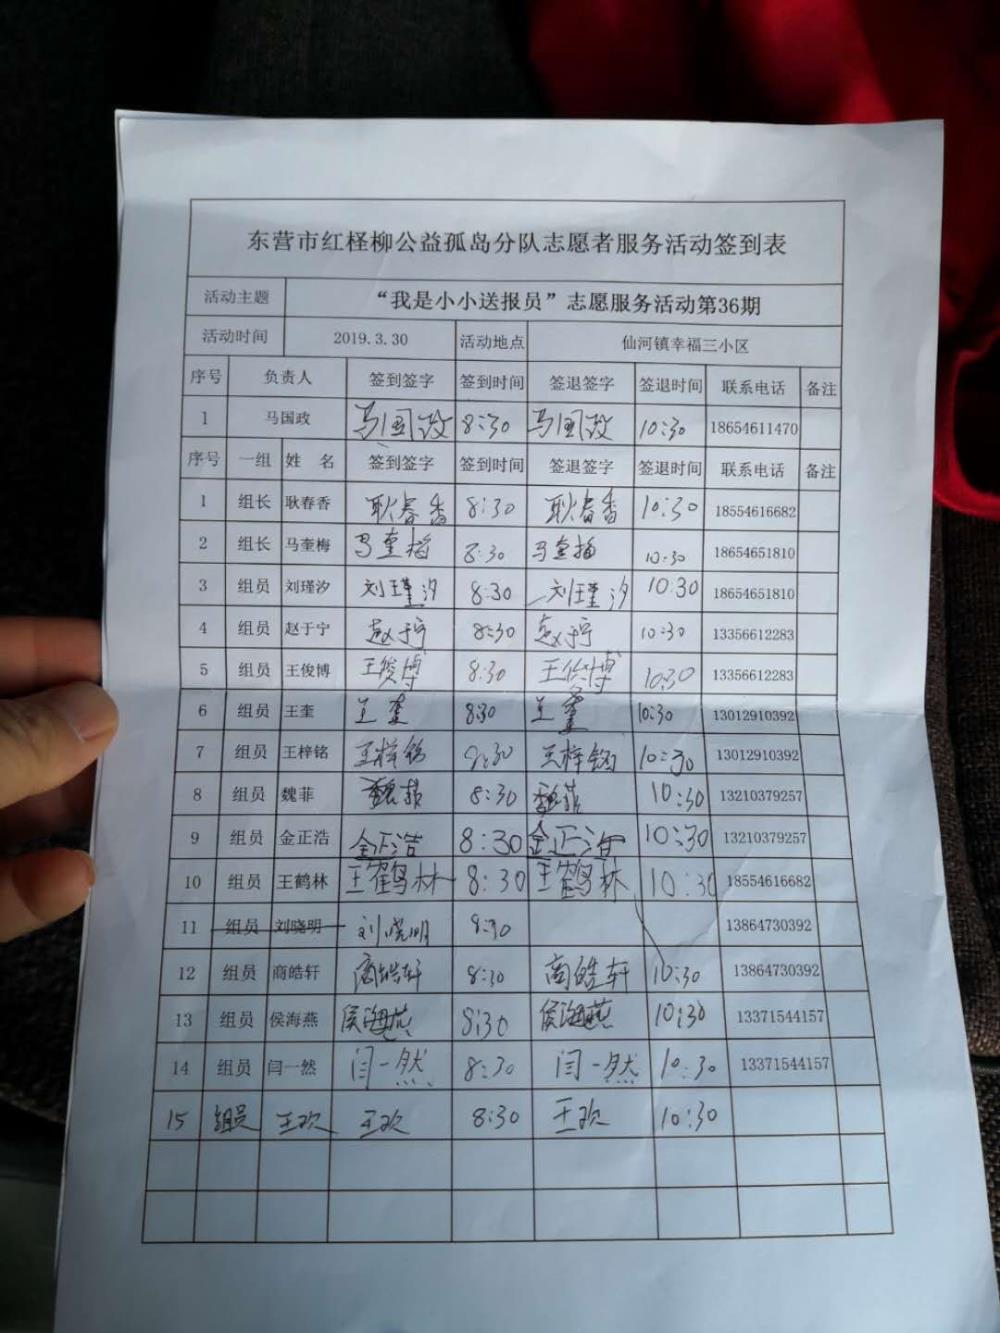 东营市红柽柳公益孤岛分队志愿者服务活动签到表
活动主题 “我是小小送报员”志愿服务活动第36期
活动时间 2019.3.30 活动地点 仙河镇幸福三小区
序号 负责人 签到签字 签到时间 签退签字 签退时间 联系电话 备注
1 马国政 马国政 8:30 马国政 10:30 18654611470
序号 一组 姓 名 签到签字 签到时间 签退签字 签退时间 联系电话 备注
1 组长 耿春香 耿春香 8:30 耿春香 10:30 18554616682
2 组长 马奎梅 马奎梅 8:30 马奎梅 10:30 18654651810
3 组员 刘瑾汐 刘瑾汐 8:30 刘瑾汐 10:30 18654651810
4 组员 赵于宁 赵于宁 8:30 赵于宁 10:30 13356612283
5 组员 王俊博 王俊博 8:30 王俊博 10:30 13356612283
6 组员 王奎 王奎 8:30 王奎 10:30 13012910392
7 组员 王梓铭 王梓铭 8:30 王梓铭 10:30 13012910392
8 组员 魏菲 魏菲 8:30 魏菲 10:30 13210379257
9 组员 金正浩 金正浩 8:30 金正浩 10:30 13210379257
10 组员 王鹤林 王鹤林 8:30 王鹤林 10:30 18554616682
11 组员 刘晓明 刘晓明 8:30 13864730392
12 组员 商皓轩 商皓轩 8:30 商皓轩 10:30 13864730392
13 组员 侯海燕 侯海燕 8:30 侯海燕 10:30 13371544157
14 组员 闫一然 闫一然 8:30 闫一然 10:30 13371544157
15 组员 王欢 王欢 8:30 王欢 10:30